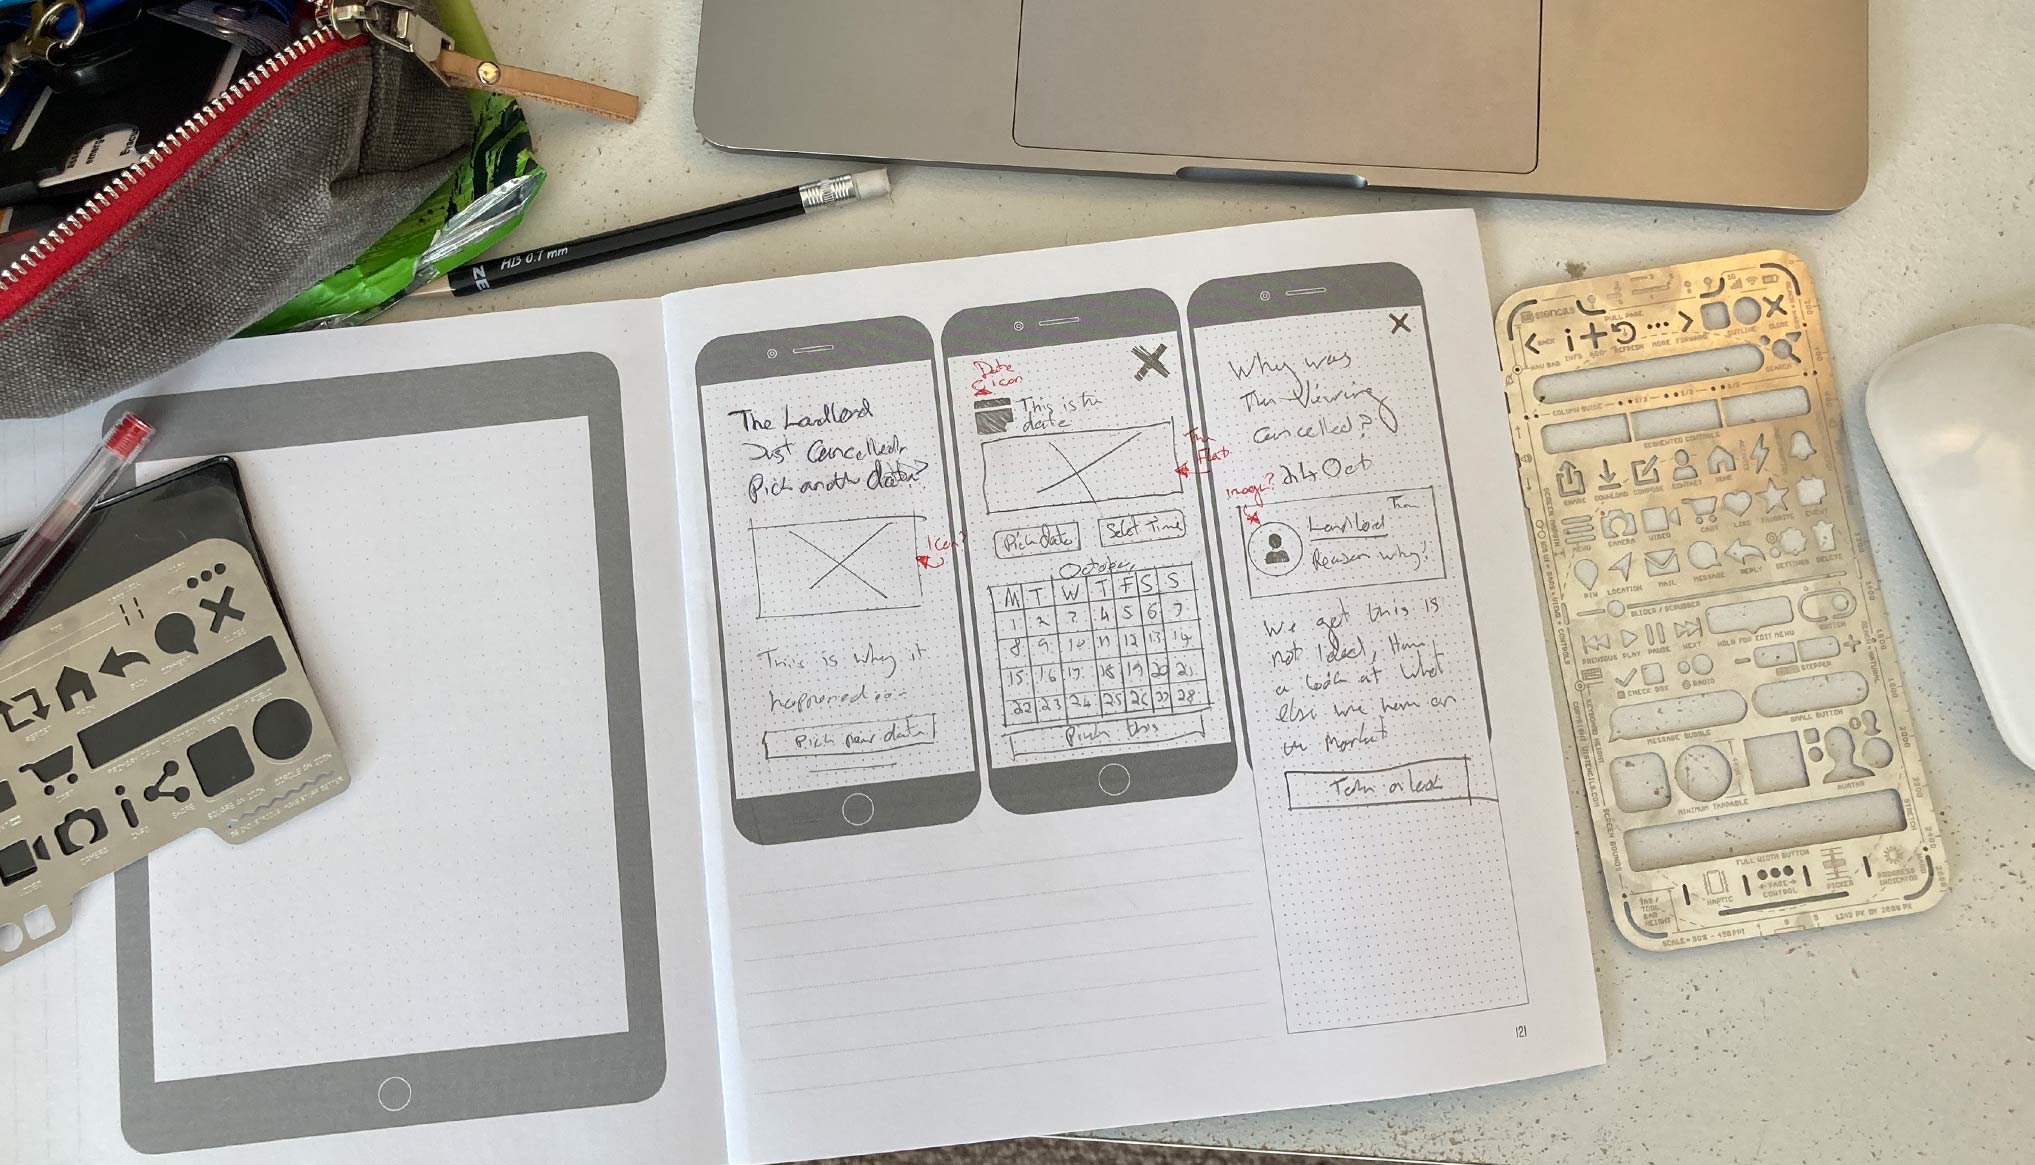 HB 0.7 mm
The Landlord
Just Cancelled,
Pick another date?
Icon?
This is why it
happened...
Pick new date
Date
icon
This is the
date
The
Flat
Pick date
Select Time
October
M T W T F S S
1 2 3 4 5 6 7
8 9 10 11 12 13 14
15 16 17 18 19 20 21
22 23 24 25 26 27 28
this
Why was
The Viewing
Cancelled?
24 Oct
image?
Landlord
Reason why!
We get this is
not ideal, Have
a look at what
else we have on
Market
look
121
stencils
PULL PAGE
BACK INFO ADD REFRESH MORE FORWARD OUTLINE CLOSE
NAV BAR
SEARCH
COLUMN GUIDE 1/2 1/3
SEGMENTED CONTROLS
SHARE DOWNLOAD COMPOSE CONTACT HOME ACTIVITY
MENU CAMERA VIDEO CART LIKE FAVORITE EVENT
PIN LOCATION MAIL MESSAGE REPLY SETTINGS DELETE
SLIDER / SCRUBBER
HOLD FOR EDIT MENU
SWITCH
PREVIOUS PLAY PAUSE NEXT
CHECK BOX RADIO
STEPPER
MESSAGE BUBBLE
SMALL BUTTON
MINIMUM TAPPABLE
AVATAR
FULL WIDTH BUTTON
TAB /
TOOL
BAR
HEIGHT
HAPTIC
PAGE
CONTROL
PICKER
PROGRESS
INDICATOR
SCALE = 50% - 458 PPI
1242 PX BY 2688 PX
CLOSE
HOME
BACK
REPEAT
CART
CAMERA
INFO
SHARE
VIDEO
SQUARE AN ICON
CIRCLE AN ICON